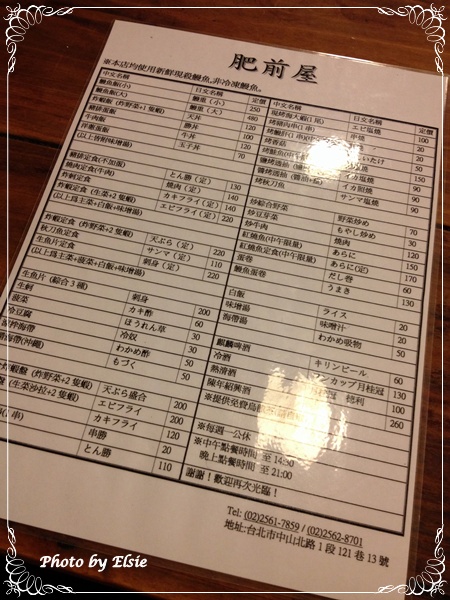 肥前屋
※本店均使用新鮮現殺鰻魚,非冷凍鰻魚。
中文名稱 日文名稱 定價
鰻魚飯(小) 鰻重(小) 250
鰻魚飯(大) 鰻重(大) 480
炸蝦飯(炸野菜+1隻蝦) 天丼 120
豬排蛋飯 勝丼
牛肉飯 牛丼
洋蔥蛋飯 玉子丼 70
(以上皆附味增湯)
豬排定食(不加蛋) とん勝(定) 130
燒肉定食(牛肉) 燒肉(定) 140
炸蚵定食 カキフライ(定) 140
炸蝦定食(生菜+2隻蝦) エビフライ(定) 220
(以上為主菜+白飯+味增湯)
炸蝦定食(炸野菜+2隻蝦) 天ぷら(定) 220
秋刀魚定食 サンマ(定) 110
生魚片定食 刺身(定) 220
(以上為主菜+菠菜+白飯+味增湯)
生魚片(綜合3種) 刺身 200
生蚵 カキ酢 60
菠菜 ほうれん草 60
冷豆腐 冷奴 30
涼拌海帶 わかめ酢 50
海帶(沖繩) もづく 50
(炸野菜+2隻蝦) 天ぷら盛合 200
(生菜沙拉+2隻蝦) エビフライ 200
カキフライ 120
(串) 串勝 20
とん勝 110
中文名稱 日文名稱 定價
現烤海大蝦(1尾) エビ塩燒 100
烤雞肉串(1串)
烤香菇 しいたけ 50
イカ照燒 150
イカ塩燒
烤秋刀魚 サンマ塩燒
炒綜合野菜 野菜炒め 70
炒豆芽菜 もやし炒め
炒牛肉 燒肉
紅燒魚(中午限量) あらに
紅燒魚定食(中午限量) あらに(定) 150
蛋卷 だし卷 60
鰻魚蛋卷 うまき 130
白飯 ライス
味增湯 味噌汁 20
海帶湯 わかめ吸物 50
麒麟啤酒 キリンビール
冷酒 ワンカップ月桂冠 130
熱清酒 100
陳年紹興酒 260
※提供免費烏龍
※每週一公休
※中午點餐時間 至 14:30
晚上點餐時間 至 21:00
謝謝!歡迎再次光臨!
Tel: (02)2561-7859 / (02)2562-8701
地址:台北市中山北路1段121巷13號
Photo by Elsie